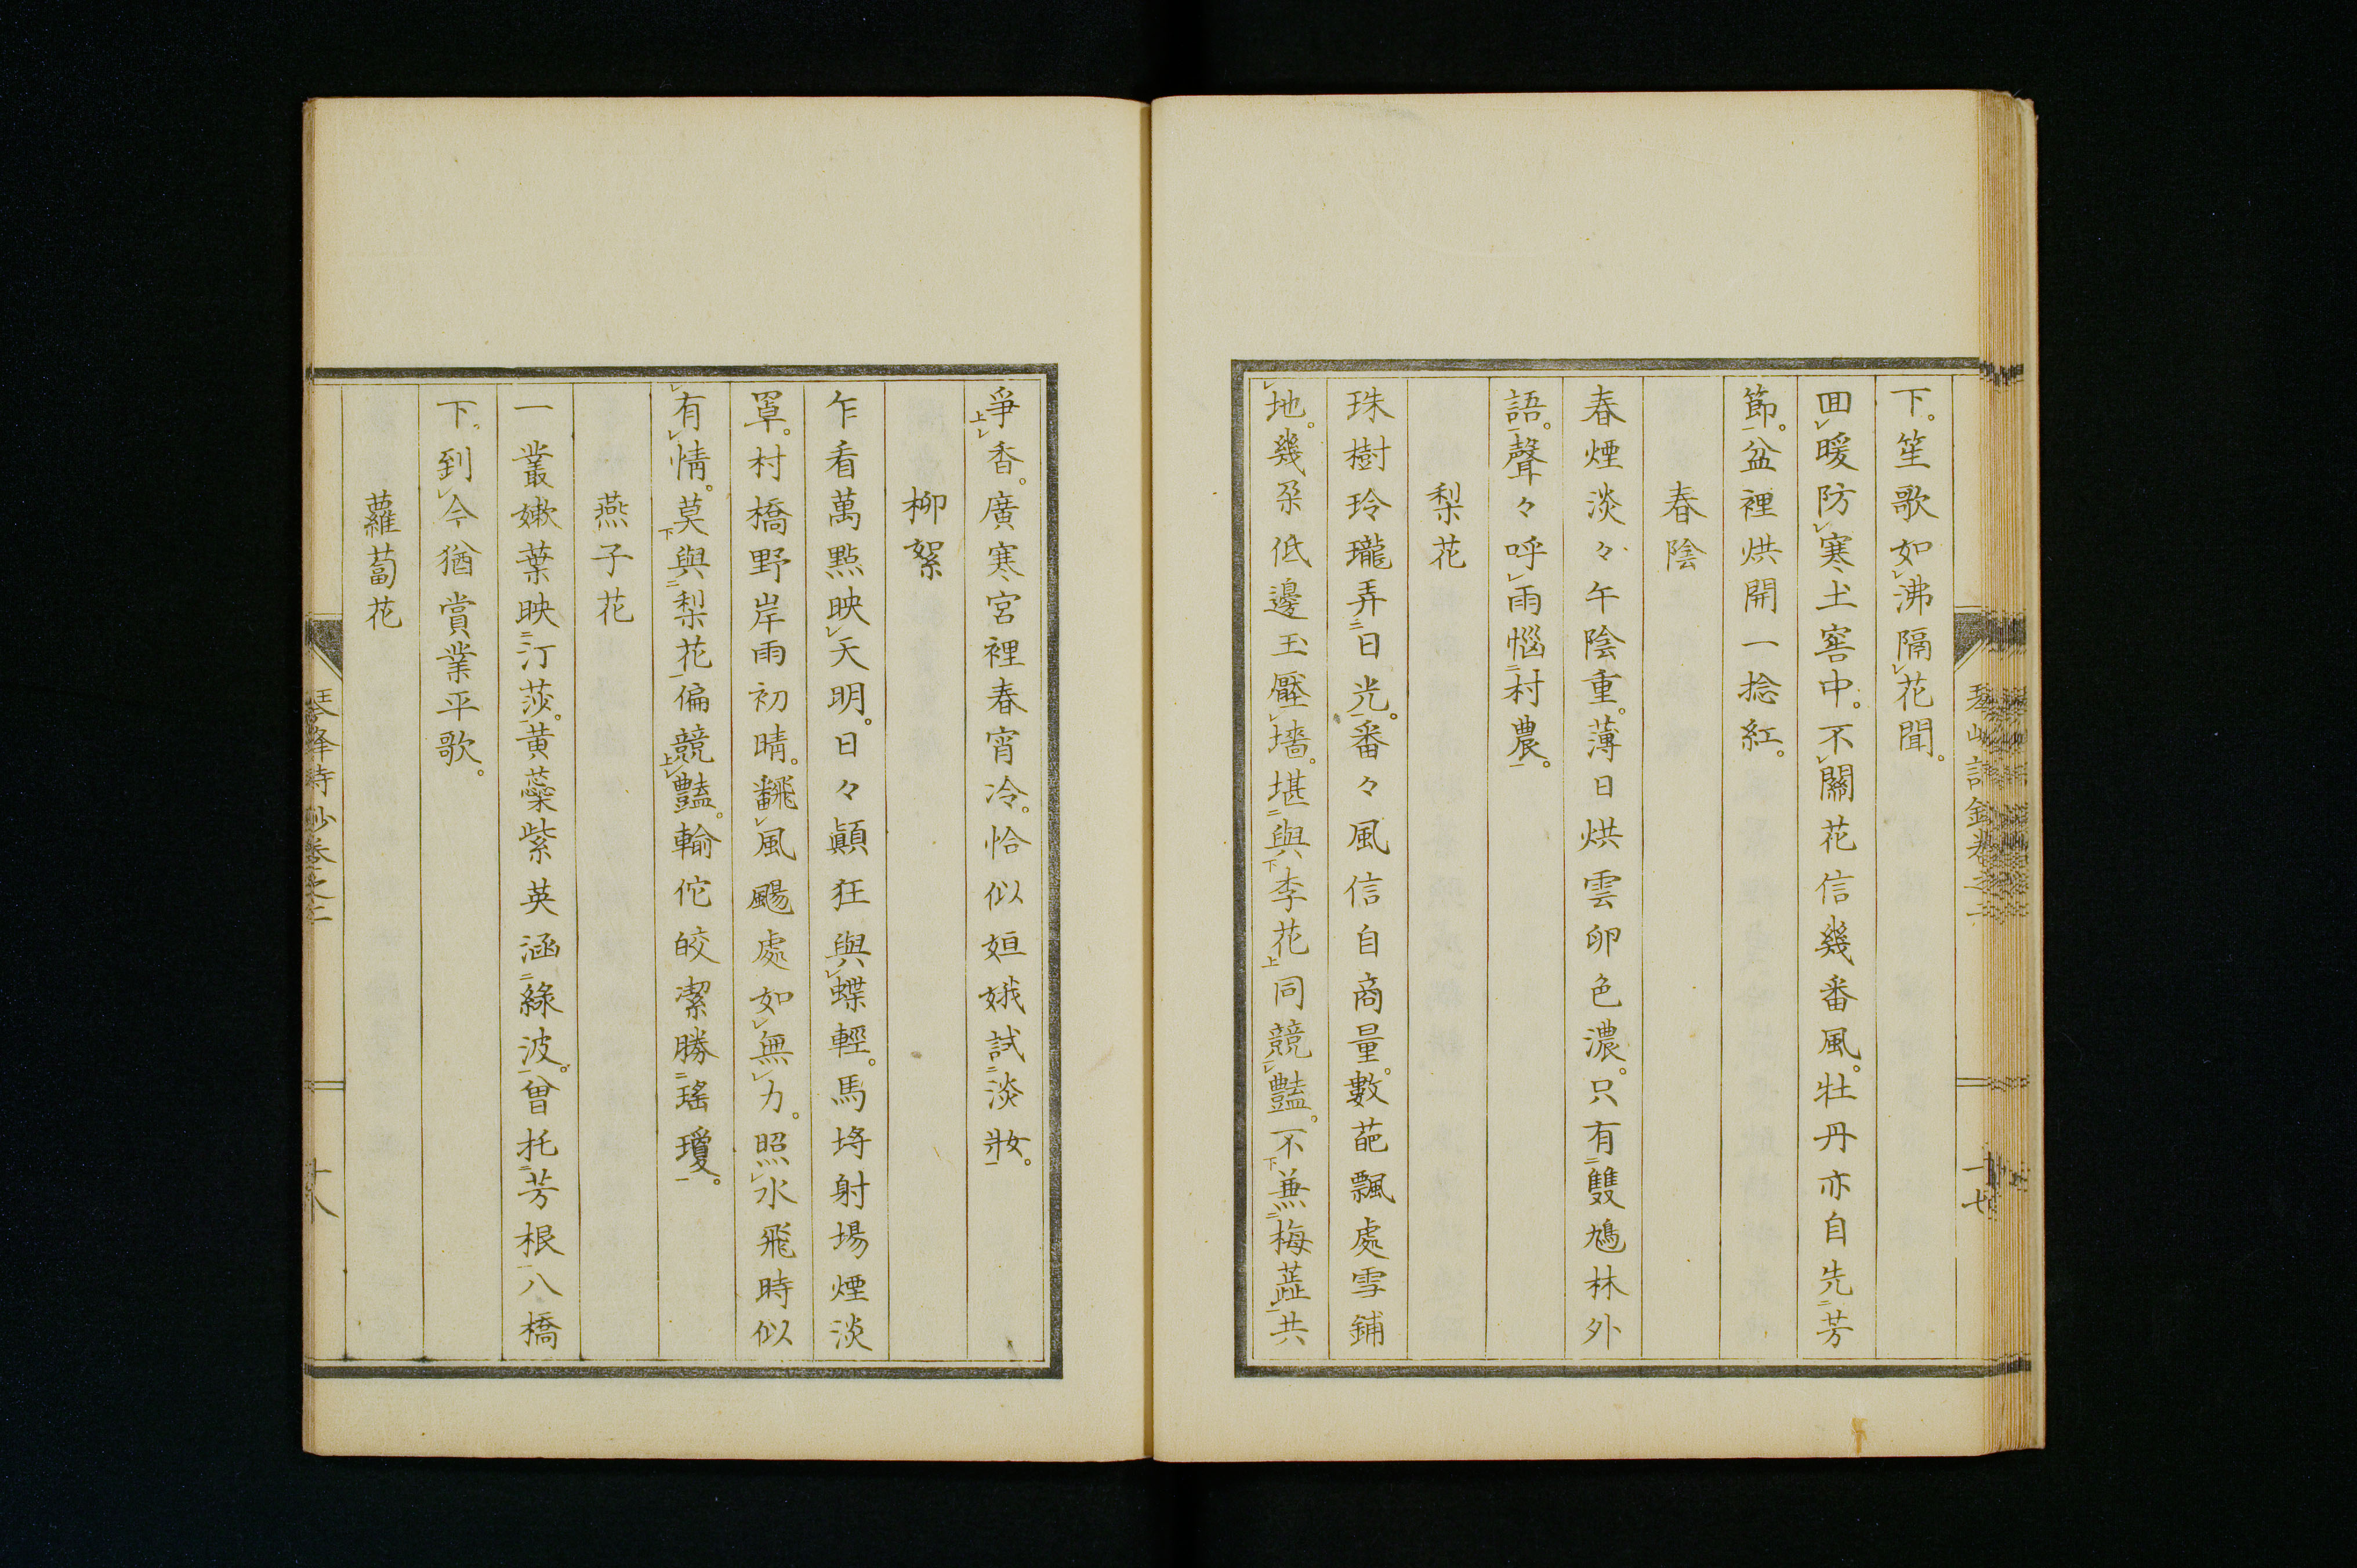 下。笙歌如沸隔花聞。
回暖防寒土窖中。不關花信幾番風。牡丹亦自先芳
節。盆裡烘開一捻紅。
春陰
春煙淡々午陰重。薄日烘雲卵色濃。只有雙鳩林外
語。聲々呼雨惱村農。
梨花
珠樹玲瓏弄日光。番々風信自商量。數葩飄處雪鋪
地。幾朶低邊玉壓墻。堪與李花同競豔。不兼梅蘂共
爭香。廣寒宮裡春宵冷。恰似姮娥試淡妝。
柳絮
乍看萬點映天明。日々顚狂與蝶輕。馬埒射場煙淡
罩。村橋野岸雨初晴。飜風颺處如無力。照水飛時似
有情。莫與梨花偏競豔。輸佗皎潔勝瑤瓊。
燕子花
一叢嫩葉映汀莎。黄蘂紫英涵綠波。曾托芳根八橋
下。到今猶賞業平歌。
蘿蔔花
十七